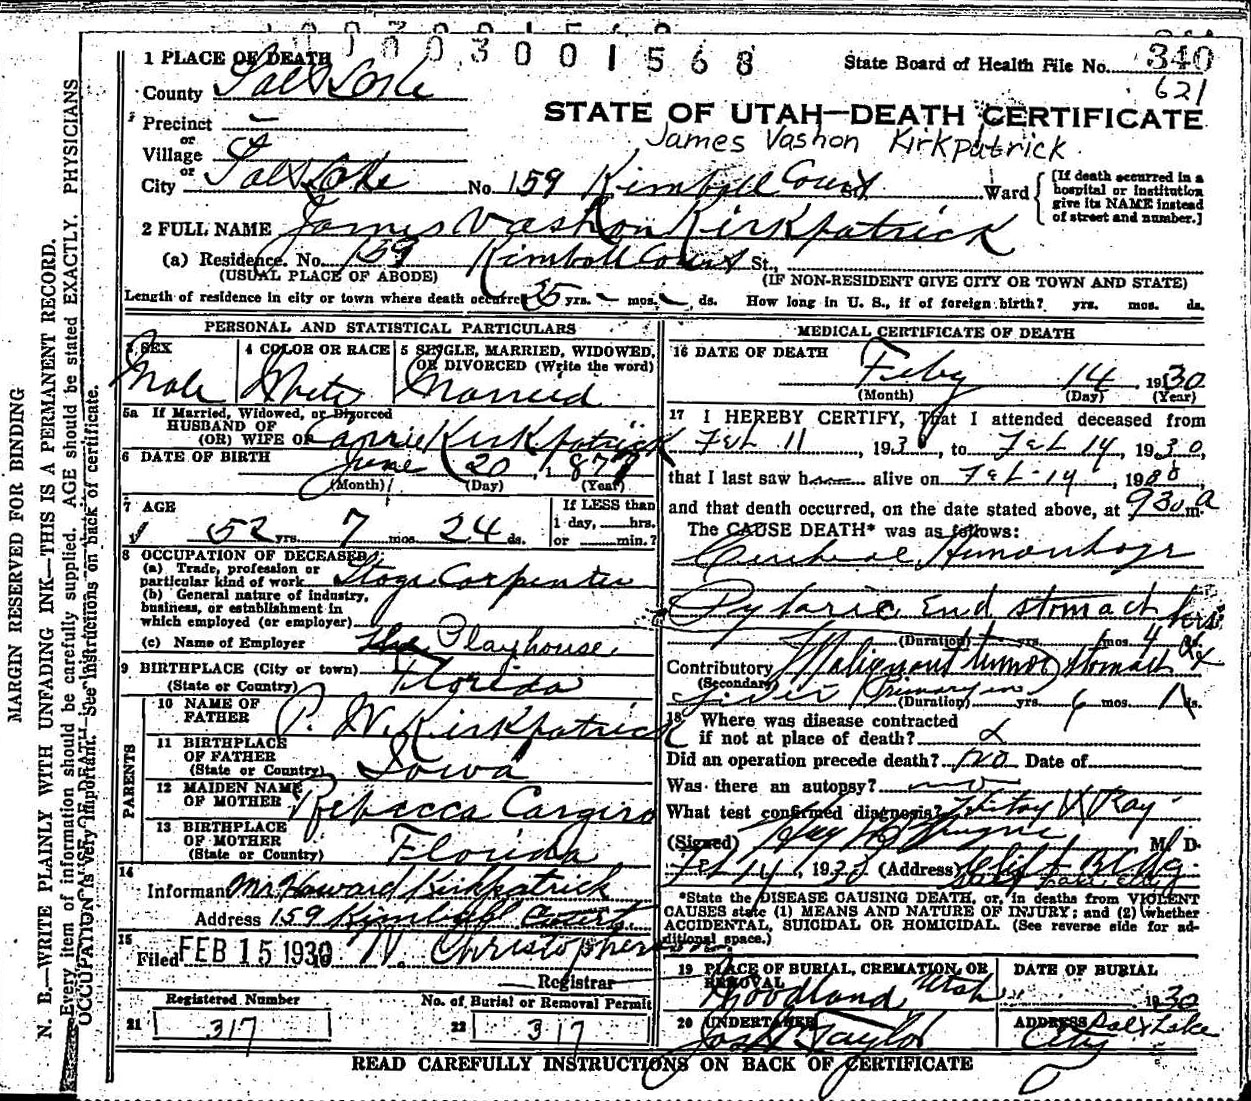 003001568
State Board of Health File No. 340
621
1 PLACE OF DEATH
County Salt Lake
STATE OF UTAH—DEATH CERTIFICATE
James Vashon Kirkpatrick
Precinct –
or
Village
or
City Salt Lake No. 159 Kimball Court St. Ward
[If death occurred in a
hospital or institution
give its NAME instead
of street and number.]
2 FULL NAME James Vashon Kirkpatrick
(a) Residence. No. 159 Kimball Court St.,
(USUAL PLACE OF ABODE) (IF NON-RESIDENT GIVE CITY OR TOWN AND STATE)
Length of residence in city or town where death occurred 35 yrs. – mos. – ds. How long in U. S., if of foreign birth? yrs. mos. ds.
PERSONAL AND STATISTICAL PARTICULARS
3 SEX 4 COLOR OR RACE 5 SINGLE, MARRIED, WIDOWED,
OR DIVORCED (Write the word)
Male White Married
5a If Married, Widowed, or Divorced
HUSBAND OF
(OR) WIFE OF Carrie Kirkpatrick
6 DATE OF BIRTH June 20, 1877
(Month) (Day) (Year)
7 AGE If LESS than
1 day, hrs.
52 yrs. 7 mos. 24 ds. or min.?
8 OCCUPATION OF DECEASED:
(a) Trade, profession or
particular kind of work Stage Carpenter
(b) General nature of industry,
business, or establishment in
which employed (or employer)
(c) Name of Employer The Playhouse
9 BIRTHPLACE (City or town)
(State or Country) Florida
PARENTS
10 NAME OF
FATHER P. W. Kirkpatrick
11 BIRTHPLACE
OF FATHER
(State or Country) Iowa
12 MAIDEN NAME
OF MOTHER Rebecca
13 BIRTHPLACE
OF MOTHER
(State or Country) Florida
14
Informant Mr Howard Kirkpatrick
Address 159 Kimball Court
15
Filed FEB 15 1930 N. Christophersen
Registrar
Registered Number No. of Burial or Removal Permit
21 317 22 317
MEDICAL CERTIFICATE OF DEATH
16 DATE OF DEATH
Feby 14, 1930
(Month) (Day) (Year)
17 I HEREBY CERTIFY, That I attended deceased from
Feb 11, 1930, to Feb 14, 1930,
that I last saw h alive on Feb 14, 1930
and that death occurred, on the date stated above, at 930 a m.
The CAUSE DEATH* was as follows:
Hemorrhage
Pyloric End stomach
(Duration) yrs. mos. 4 ds.
Contributory Malignant tumor stomach &
(Secondary)
liver Primary in (Duration) yrs. 6 mos. ds.
18 Where was disease contracted
if not at place of death?
Did an operation precede death? no Date of
Was there an autopsy? no
What test confirmed diagnosis? X Ray
(Signed) M. D.
Feb 14, 1930 (Address) Clift Bldg.
*State the DISEASE CAUSING DEATH, or, in deaths from VIOLENT
CAUSES state (1) MEANS AND NATURE OF INJURY; and (2) whether
ACCIDENTAL, SUICIDAL OR HOMICIDAL. (See reverse side for ad-
ditional space.)
19 PLACE OF BURIAL, CREMATION, OR
REMOVAL
Woodland Utah
DATE OF BURIAL
1930
20 UNDERTAKER
Taylor
ADDRESS Salt Lake
City
READ CAREFULLY INSTRUCTIONS ON BACK OF CERTIFICATE
MARGIN RESERVED FOR BINDING
N. B.—WRITE PLAINLY WITH UNFADING INK—THIS IS A PERMANENT RECORD.
Every item of information should be carefully supplied. AGE should be stated EXACTLY. PHYSICIANS
OCCUPATION is very important. See instructions on back of certificate.